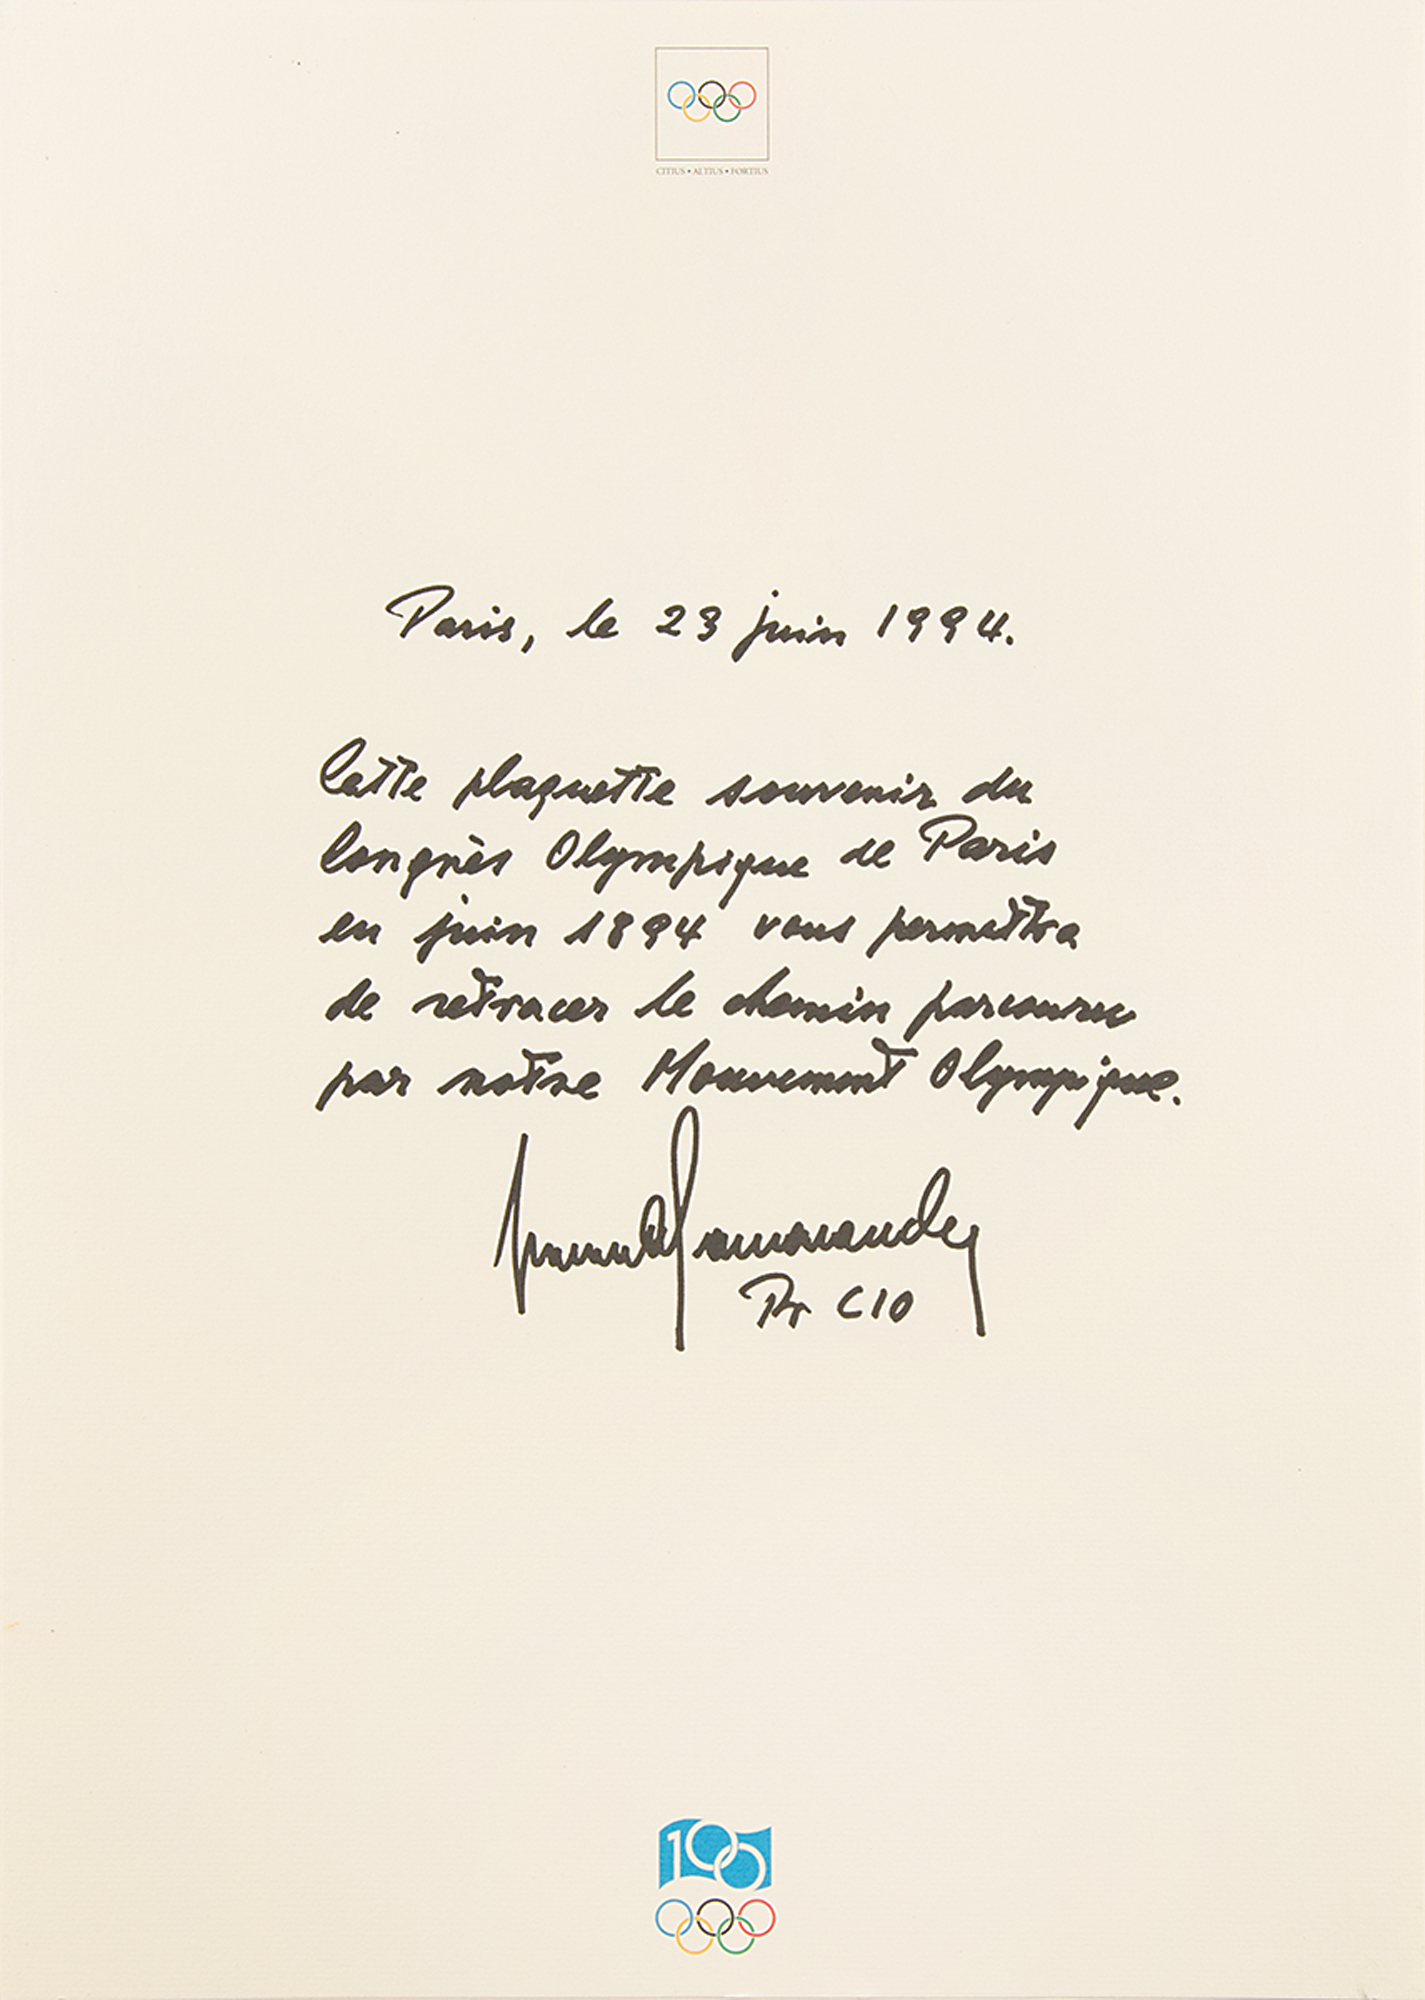 CITIUS • ALTIUS • FORTIUS
Paris, le 23 juin 1994.
Cette plaquette souvenir du
Congrès Olympique de Paris
en juin 1894 vous permettra
de retracer le chemin parcouru
par notre Mouvement Olympique.
Pr CIO
100